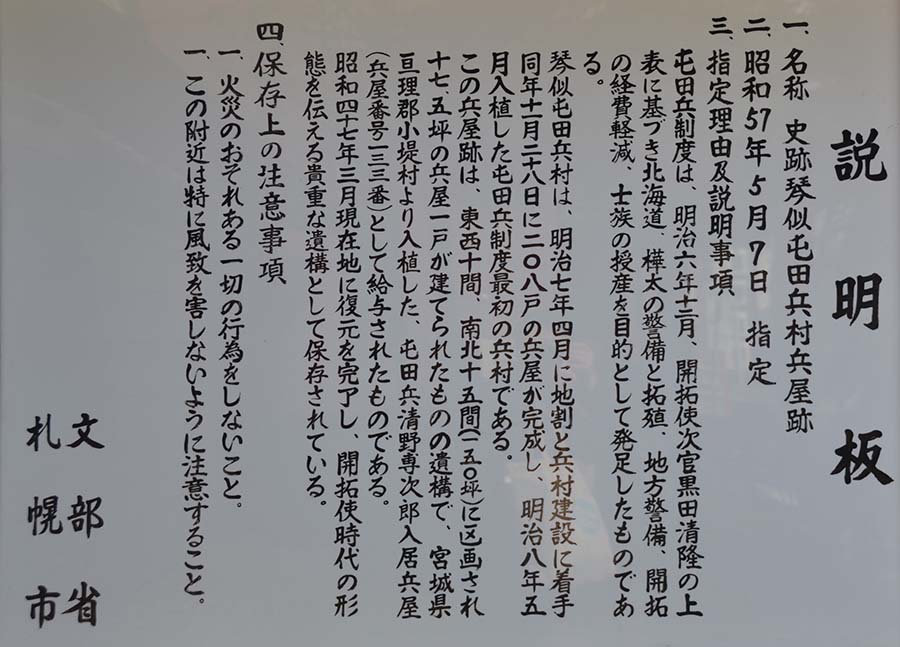 説明板
一、名称　史跡琴似屯田兵村兵屋跡
二、昭和57年5月7日　指定
三、指定理由及説明事項
屯田兵制度は、明治六年十二月、開拓使次官黒田清隆の上
表に基づき北海道、樺太の警備と拓殖、地方警備、開拓
の経費軽減、士族の授産を目的として発足したものであ
る。
琴似屯田兵村は、明治七年四月に地割と兵村建設に着手
同年十一月二十八日に二〇八戸の兵屋が完成し、明治八年五
月入植した屯田兵制度最初の兵村である。
この兵屋跡は、東西十間、南北十五間(一五〇坪)に区画され
十七、五坪の兵屋一戸が建てられたものの遺構で、宮城県
亘理郡小堤村より入植した、屯田兵清野専次郎入居兵屋
(兵屋番号一三三番)として給与されたものである。
昭和四十七年三月現在地に復元を完了し、開拓使時代の形
態を伝える貴重な遺構として保存されている。
四、保存上の注意事項
一、火災のおそれある一切の行為をしないこと。
一、この附近は特に風致を害しないように注意すること。
文部省
札幌市